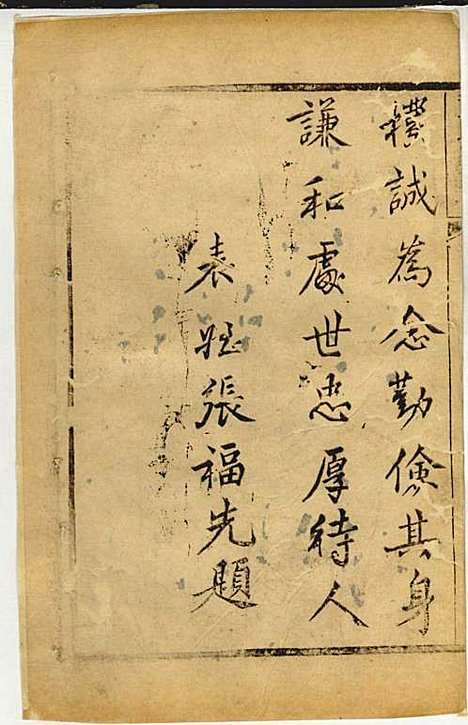 樸誠為念勤儉其身
謙和處世忠厚待人
表姪張福先題